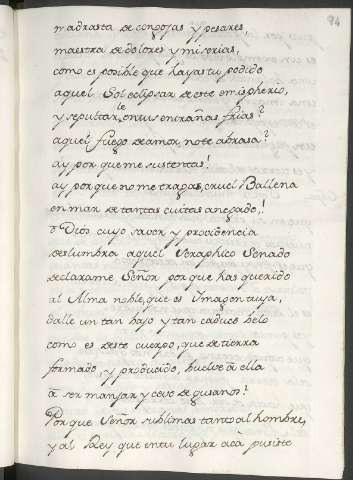 94
madrasta de congojas y pesares,
maestra de dolores y miserias,
como es posible que hayas tu podido
aquel Sol eclipsar de este emispherio,
y sepultarle en tus entrañas frias?
aquel fuego de amor, no te abrasa?
ay por que me sustentas!
ay por que no me tragas, cruel Ballena
en mar de tantas cuitas anegado,!
ò Dios cuyo favor y providencia
deslumbra aquel Seraphico Senado
declarame Señor por que has querido
al Alma noble, que es Ymagen tuya,
dalle un tan bajo y tan caduco velo
como es deste cuerpo, que de tierra
formado, y produzido, buelve à ella
à ser manjar y cevo de gusanos?
Porque Señor sublimas tanto al hombre,
y al Rey que en tu lugar acà pusiste